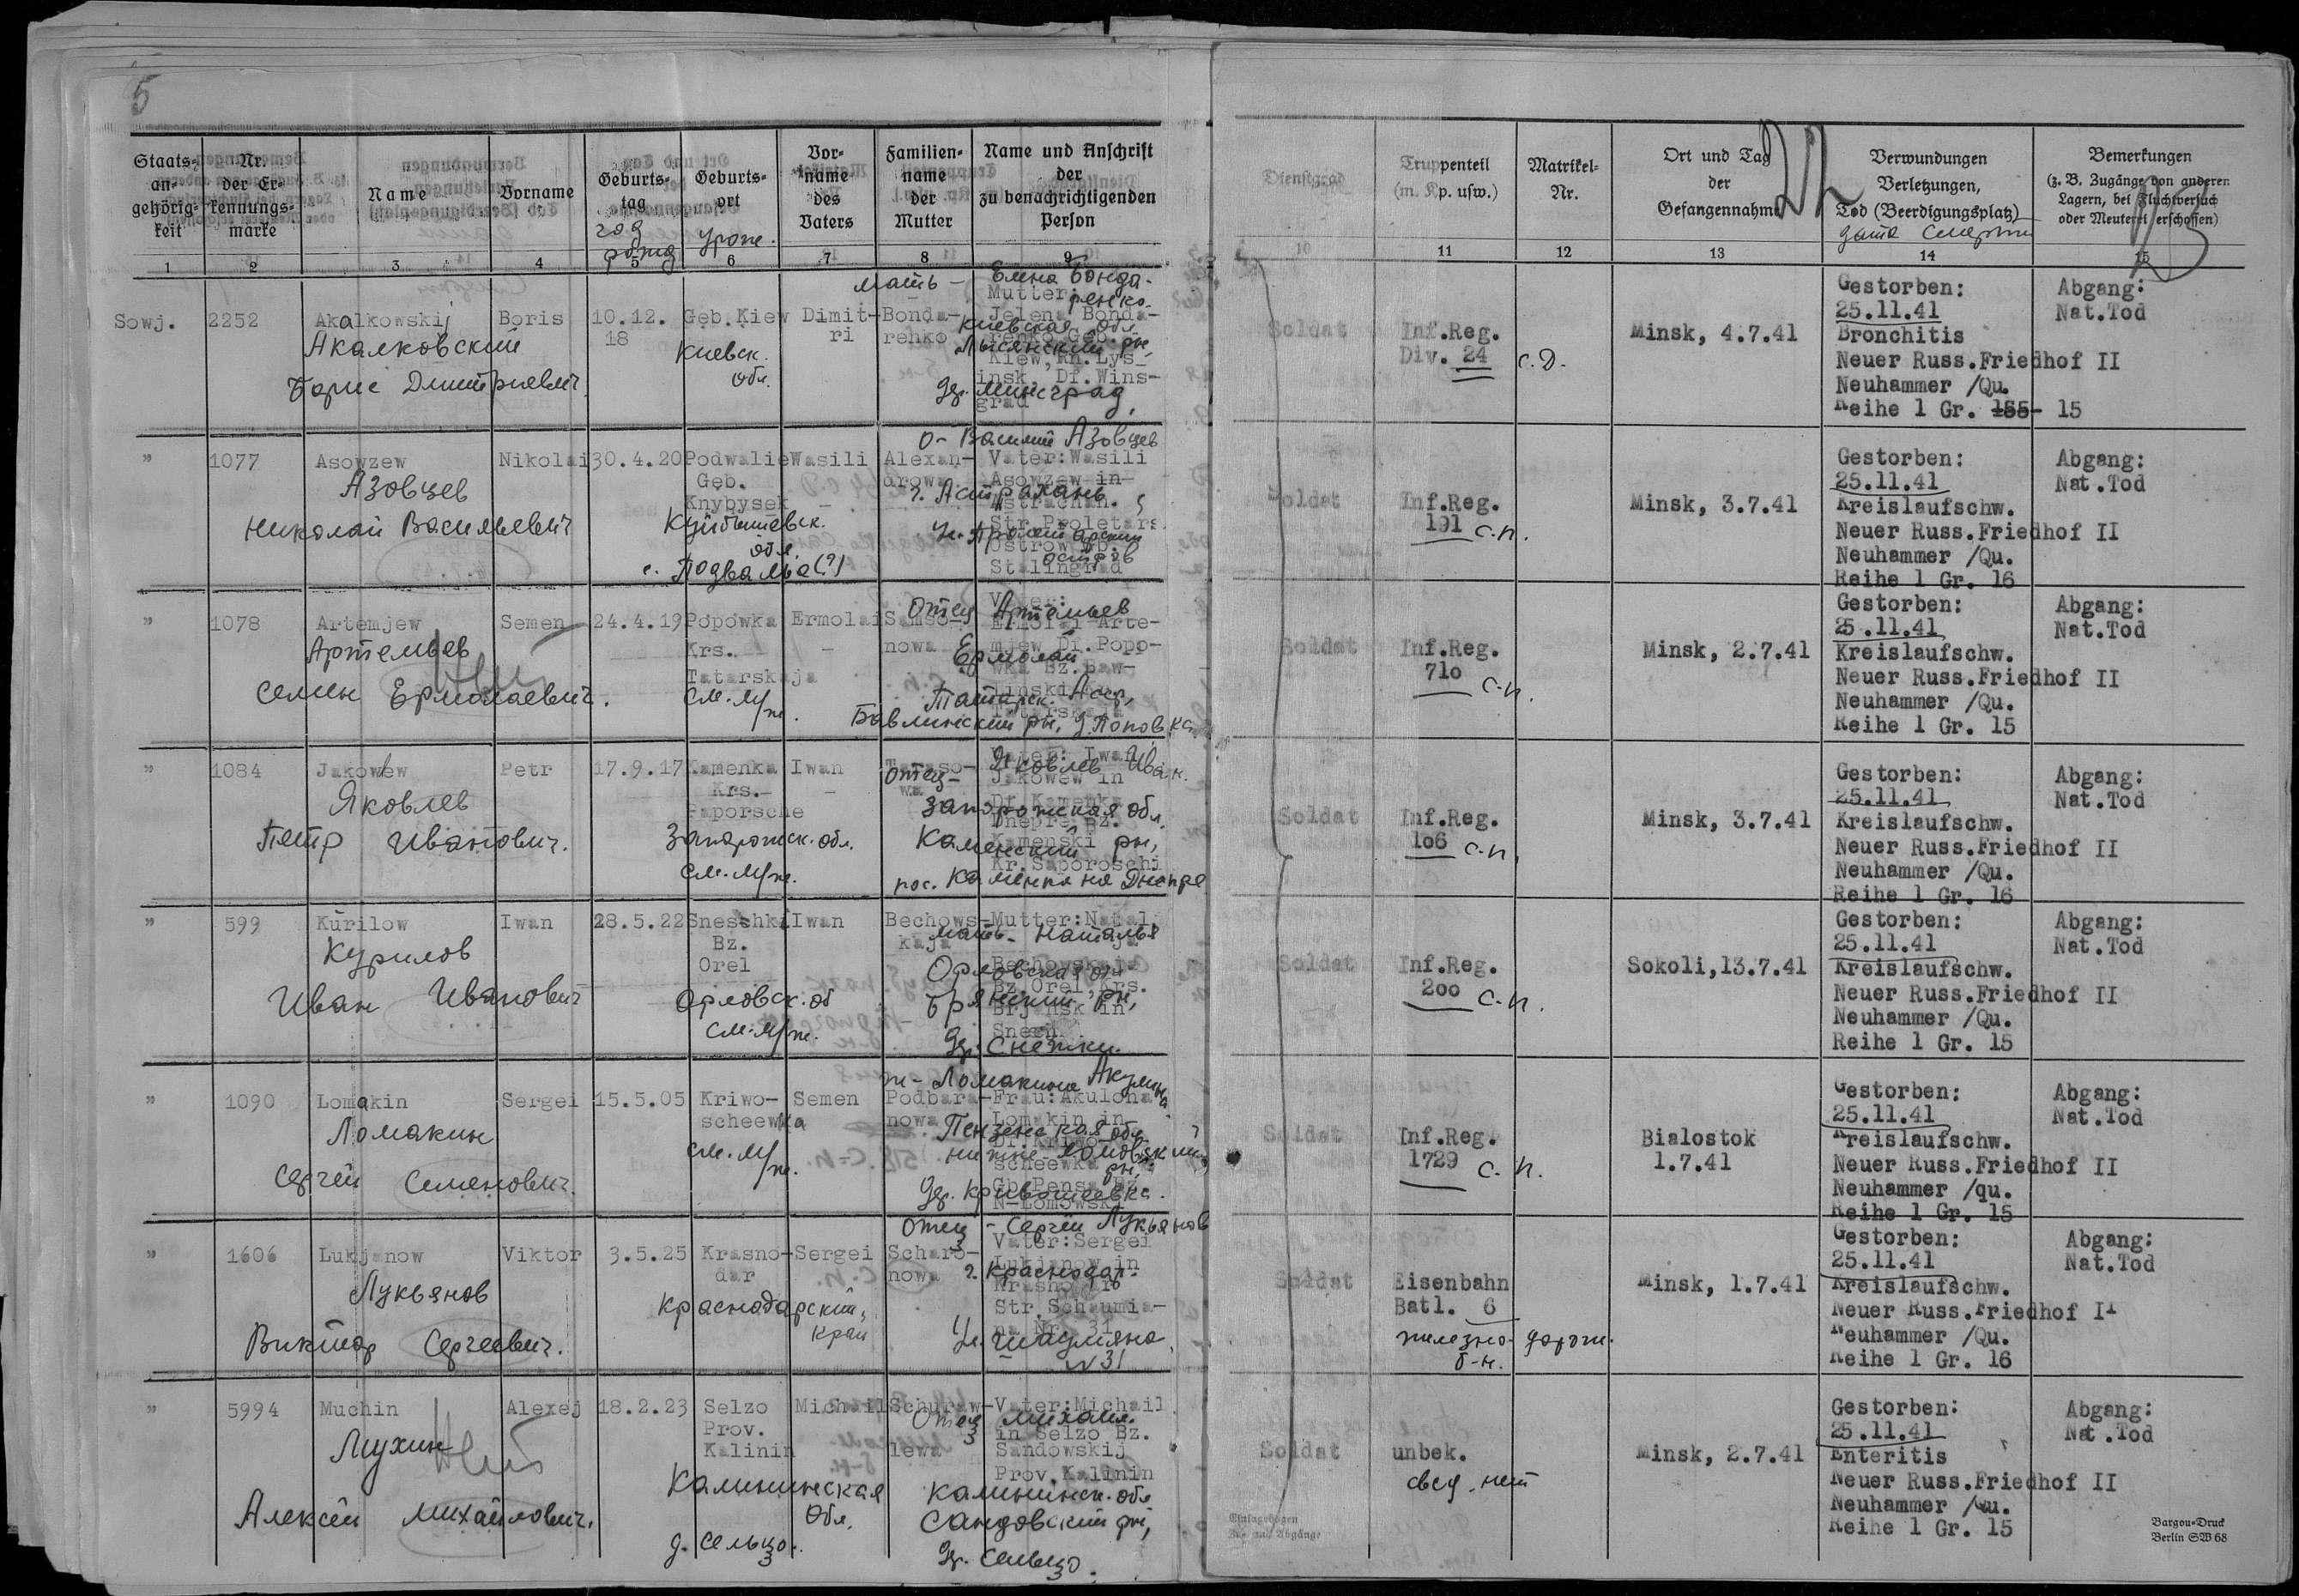 5
Staats-
an-
gehörig-
keit
Nr.
der Er-
kennungs-
marke
Name
Vorname
Geburts-
tag
год
рожд
Geburts-
ort
урож.
Vor-
name
des
Vaters
Familien-
name
der
Mutter
Name und Anschrift
der
zu benachrichtigenden
Person
Dienstgrad
Truppenteil
(m. Kp. usw.)
Matrikel-
Nr.
Ort und Tag
der
Gefangennahme
Verwundungen
Verletzungen,
Tod (Beerdigungsplatz)
дата смерти
Bemerkungen
(z. B. Zugänge von anderen
Lagern, bei Fluchtversuch
oder Meuterei erschossen)
1 2 3 4 5 6 7 8 9 10 11 12 13 14 15
Sowj.
2252
Akalkowskij
Акалковский
Борис Дмитриевич
Boris
10.12.
18
Geb. Kiew
Киевск.
обл.
Dimit-
ri
Bonda-
renko
мать - Елена Бонда-
ренко
Mutter:
Jelena Bonda-
Киевская обл
Лысянский рн,
Kiew, Rn. Lys-
insk, Df. Wins-
grad
др. Минсград,
Soldat
Inf.Reg.
Div. 24 с.д.
Minsk, 4.7.41
Gestorben:
25.11.41
Bronchitis
Neuer Russ.Friedhof II
Neuhammer /Qu.
Reihe 1 Gr. 155- 15
Abgang:
Nat.Tod
"
1077
Asowzew
Азовцев
Николай Васильевич
Nikolai
30.4.20
Podwalie
Geb.
Knybysek
Куйбышевск.
обл.
с. Подвалье(?)
Wasili
-
Alexan-
drowa
о- Василий Азовцев
Vater: Wasili
Asowzew in
г. Астрахань
Astrachan.
Str. Proletars
ул. Пролетарский
остров
Stalingrad
Soldat
Inf.Reg.
191 с.п.
Minsk, 3.7.41
Gestorben:
25.11.41
Kreislaufschw.
Neuer Russ.Friedhof II
Neuhammer /Qu.
Reihe 1 Gr. 16
Abgang:
Nat.Tod
"
1078
Artemjew
Артемьев
Семен Ермолаевич.
Semen
24.4.19
Popowka
Krs.
Tatarskaja
см. м/ж.
Ermolai
-
Samso-
nowa
Отец Артемьев
Ермолай
Ermolai Arte-
mjew Df. Popo-
wka Bz. Baw-
linski
Татарск. Асср,
Бавлинский рн, д. Поповка
Soldat
Inf.Reg.
710 с.п.
Minsk, 2.7.41
Gestorben:
25.11.41
Kreislaufschw.
Neuer Russ.Friedhof II
Neuhammer /Qu.
Reihe 1 Gr. 15
Abgang:
Nat.Tod
"
1084
Jakowlew
Яковлев
Петр Иванович.
Petr
17.9.17
Kamenka
Krs.
Saporsche
Запорожск. обл.
см. м/ж.
Iwan
-
отец- Яковлев Иван.
Vater: Iwan
Jakowew in
Df. Kamenka
Запорожская обл.
Dnepre Bz.
Kamenski
Каменский рн,
Kr. Saporoschi
пос. Каменка на Днепре
Soldat
Inf.Reg.
106 с.п.
Minsk, 3.7.41
Gestorben:
25.11.41
Kreislaufschw.
Neuer Russ.Friedhof II
Neuhammer /Qu.
Reihe 1 Gr. 16
Abgang:
Nat.Tod
"
599
Kurilow
Курилов
Иван Иванович
Iwan
28.5.22
Sneschki
Bz.
Orel
Орловск. об
см. м/ж.
Iwan
Bechows-
kaja
Mutter: Natal
мать- Наталья
Bechowskaja
Орловская обл
Bz. Orel, Krs.
Брянский рн,
Brjansk in
др. Снежки.
Soldat
Inf.Reg.
200 с.п.
Sokoli, 13.7.41
Gestorben:
25.11.41
Kreislaufschw.
Neuer Russ.Friedhof II
Neuhammer /Qu.
Reihe 1 Gr. 15
Abgang:
Nat.Tod
"
1090
Lomakin
Ломакин
Сергей Семенович.
Sergei
15.5.05
Kriwo-
scheewka
см. м/ж.
Semen
Podbara-
nowa
ж- Ломакина Акулина
Frau: Akulona
Lomakin in
Пензенская обл
Df. Kriwo-
Нижне-Ломовский
scheewka рн,
Gb. Pensa Bz.
др. Кривошеевка.
N-Lomowski
Soldat
Inf.Reg.
1729 с.п.
Bialostok
1.7.41
Gestorben:
25.11.41
Kreislaufschw.
Neuer Russ.Friedhof II
Neuhammer /qu.
Reihe 1 Gr. 15
Abgang:
Nat.Tod
"
1606
Lukjanow
Лукьянов
Виктор Сергеевич.
Viktor
3.5.25
Krasno-
dar
Краснодарский
край
Sergei
Scharo-
nowa
Отец - Сергей Лукьянов
Vater: Sergei
Lukjanow in
г. Краснодар.
Str. Schaumia-
na Nr. 31
ул. Шаумяна
N 31
Soldat
Eisenbahn
Batl. 6
железно-дорож.
б-н.
Minsk, 1.7.41
Gestorben:
25.11.41
Kreislaufschw.
Neuer Russ.Friedhof II
Neuhammer /Qu.
Reihe 1 Gr. 16
Abgang:
Nat.Tod
"
5994
Muchin
Мухин
Алексей Михайлович.
Alexej
18.2.23
Selzo
Prov.
Kalinin
Калининская
обл.
д. Сельцо.
Michail
Schuraw-
lewa
Vater: Michail
Отец Михаил.
in Selzo Bz.
Sandowskij
Prov. Kalinin
Калининск. обл
Сандовский рн,
др. Сельцо.
Soldat
unbek.
свед. нет
Minsk, 2.7.41
Gestorben:
25.11.41
Enteritis
Neuer Russ.Friedhof II
Neuhammer /Qu.
Reihe 1 Gr. 15
Abgang:
Nat.Tod
Einlagebogen
Zu- und Abgänge
Bargou-Druck
Berlin SW 68